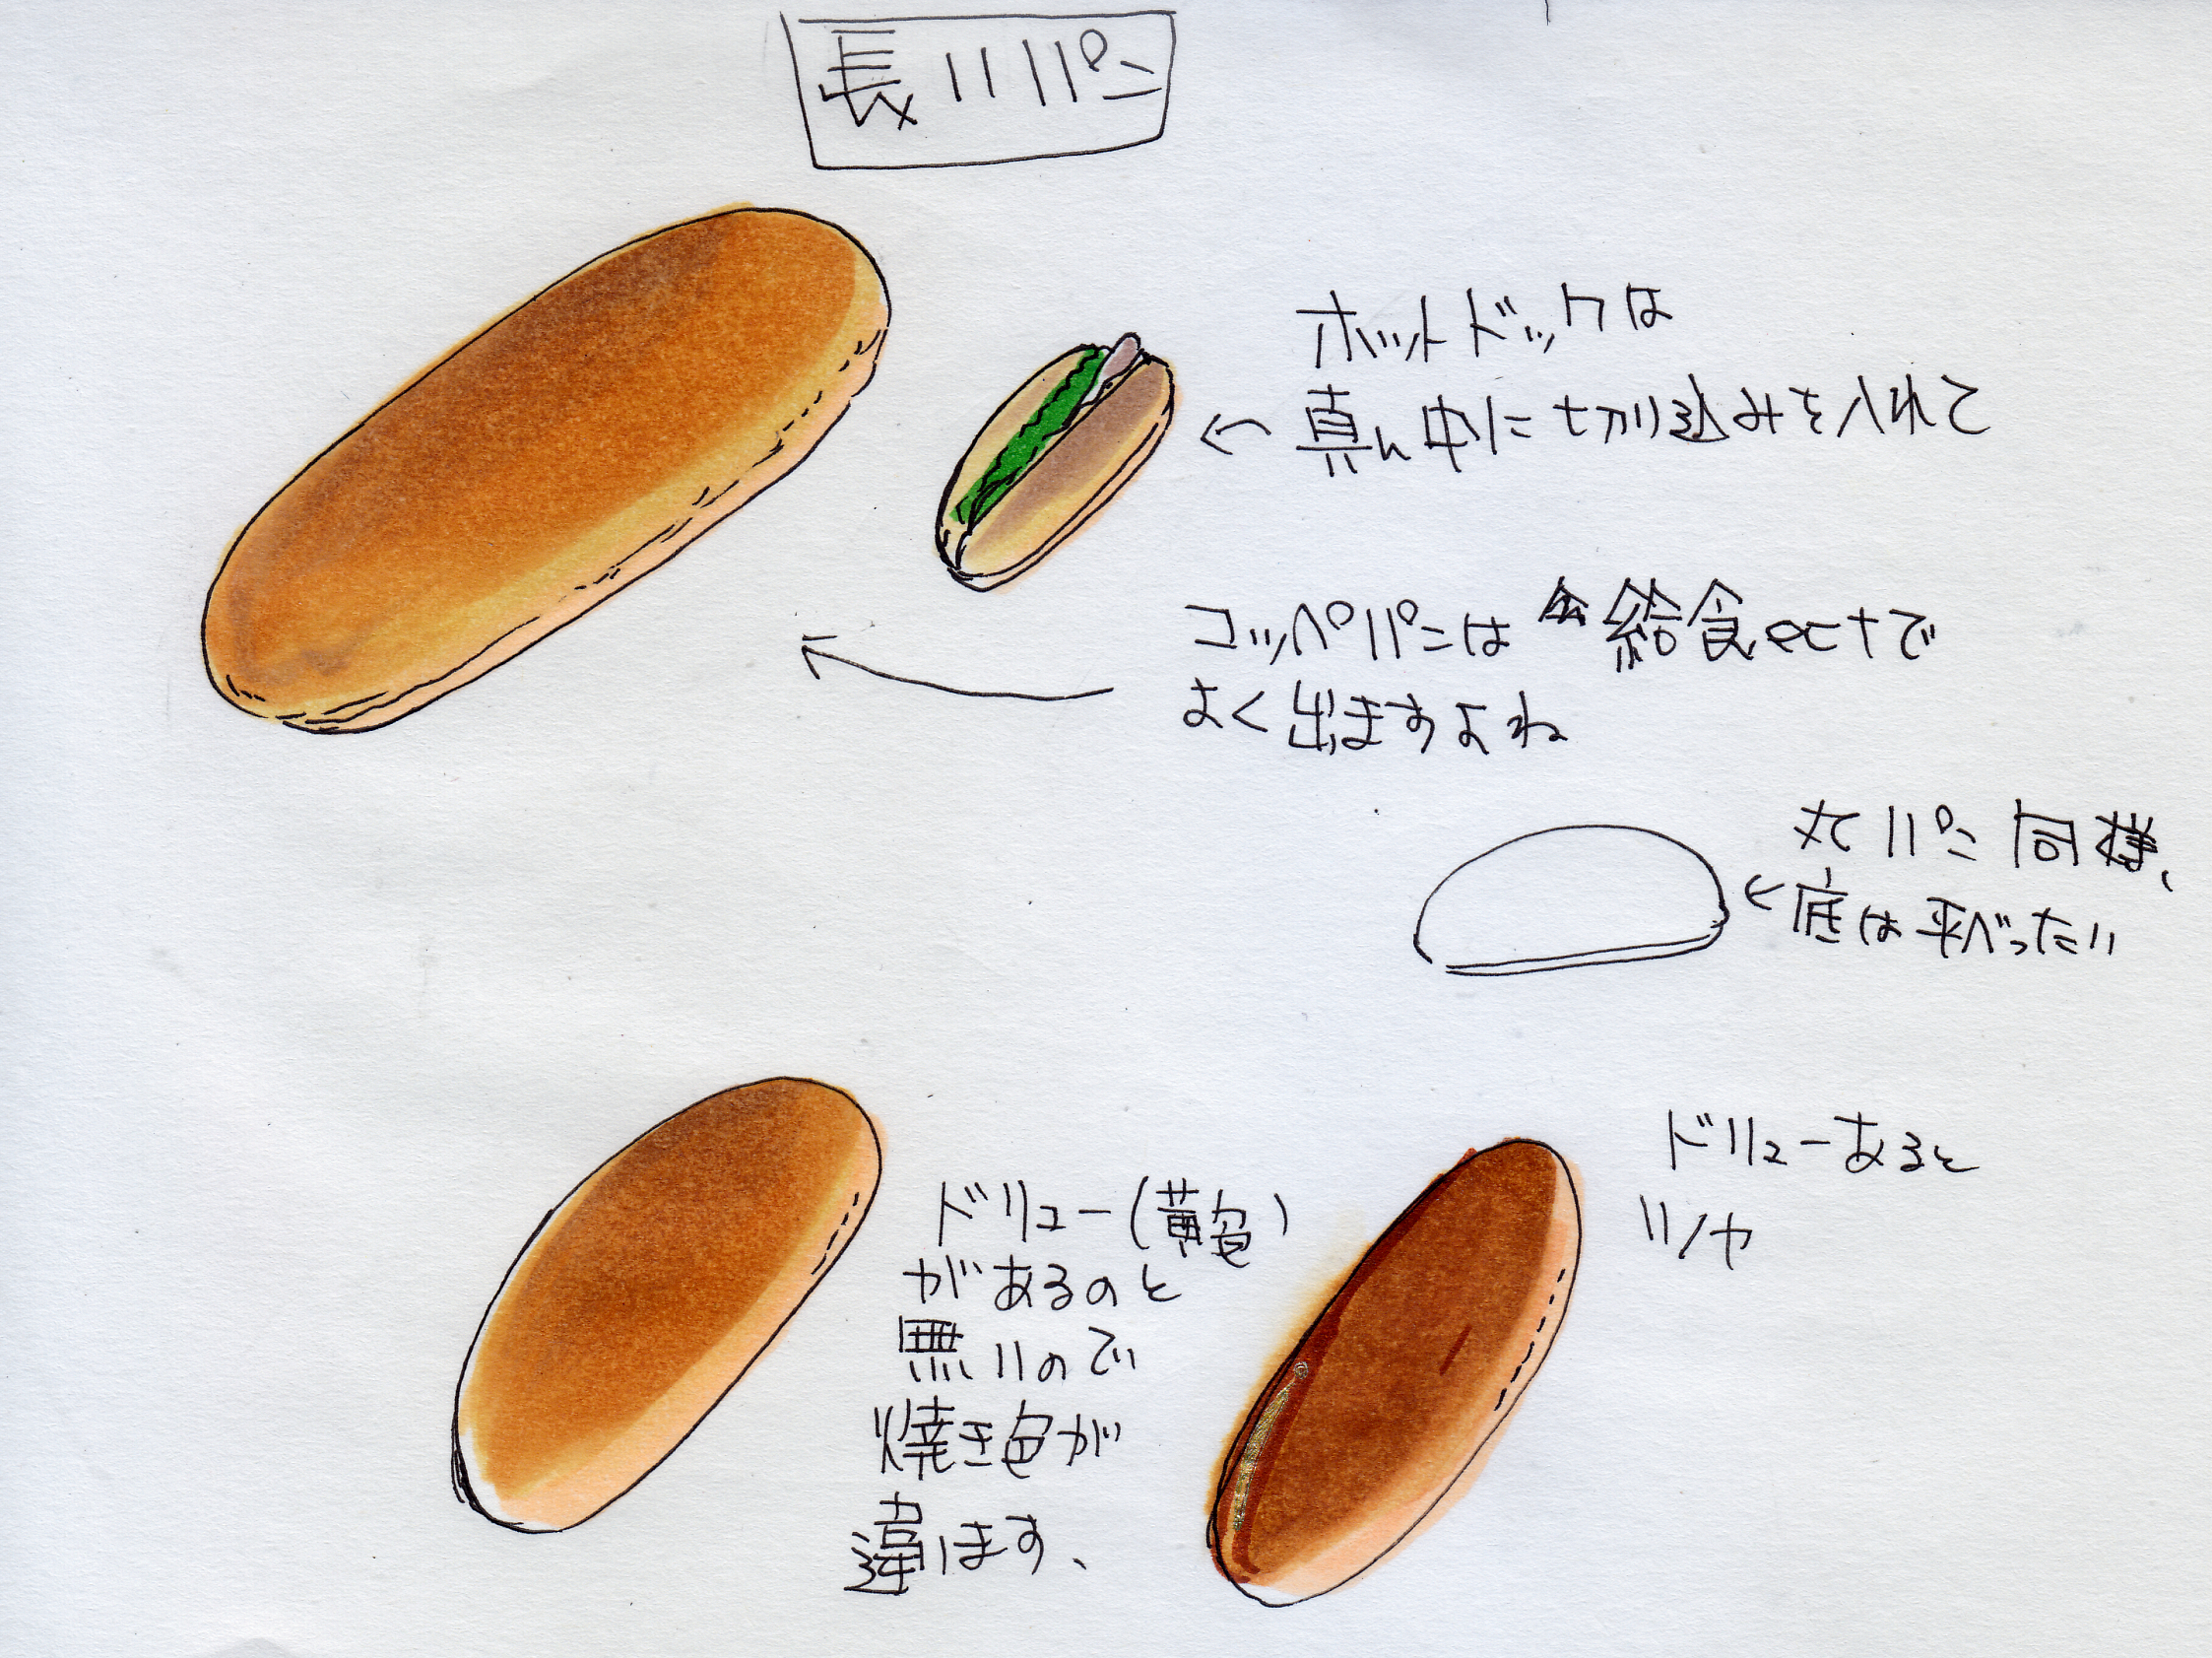 長いパン
ホットドックは
真ん中に切り込みを入れて
コッペパンは 給食ectで
よく出ますよね
丸パン同様、
底は平べったい
ドリューあると
ツヤ
ドリュー(黄色)
があるのと
無いので
焼き色が
違います、